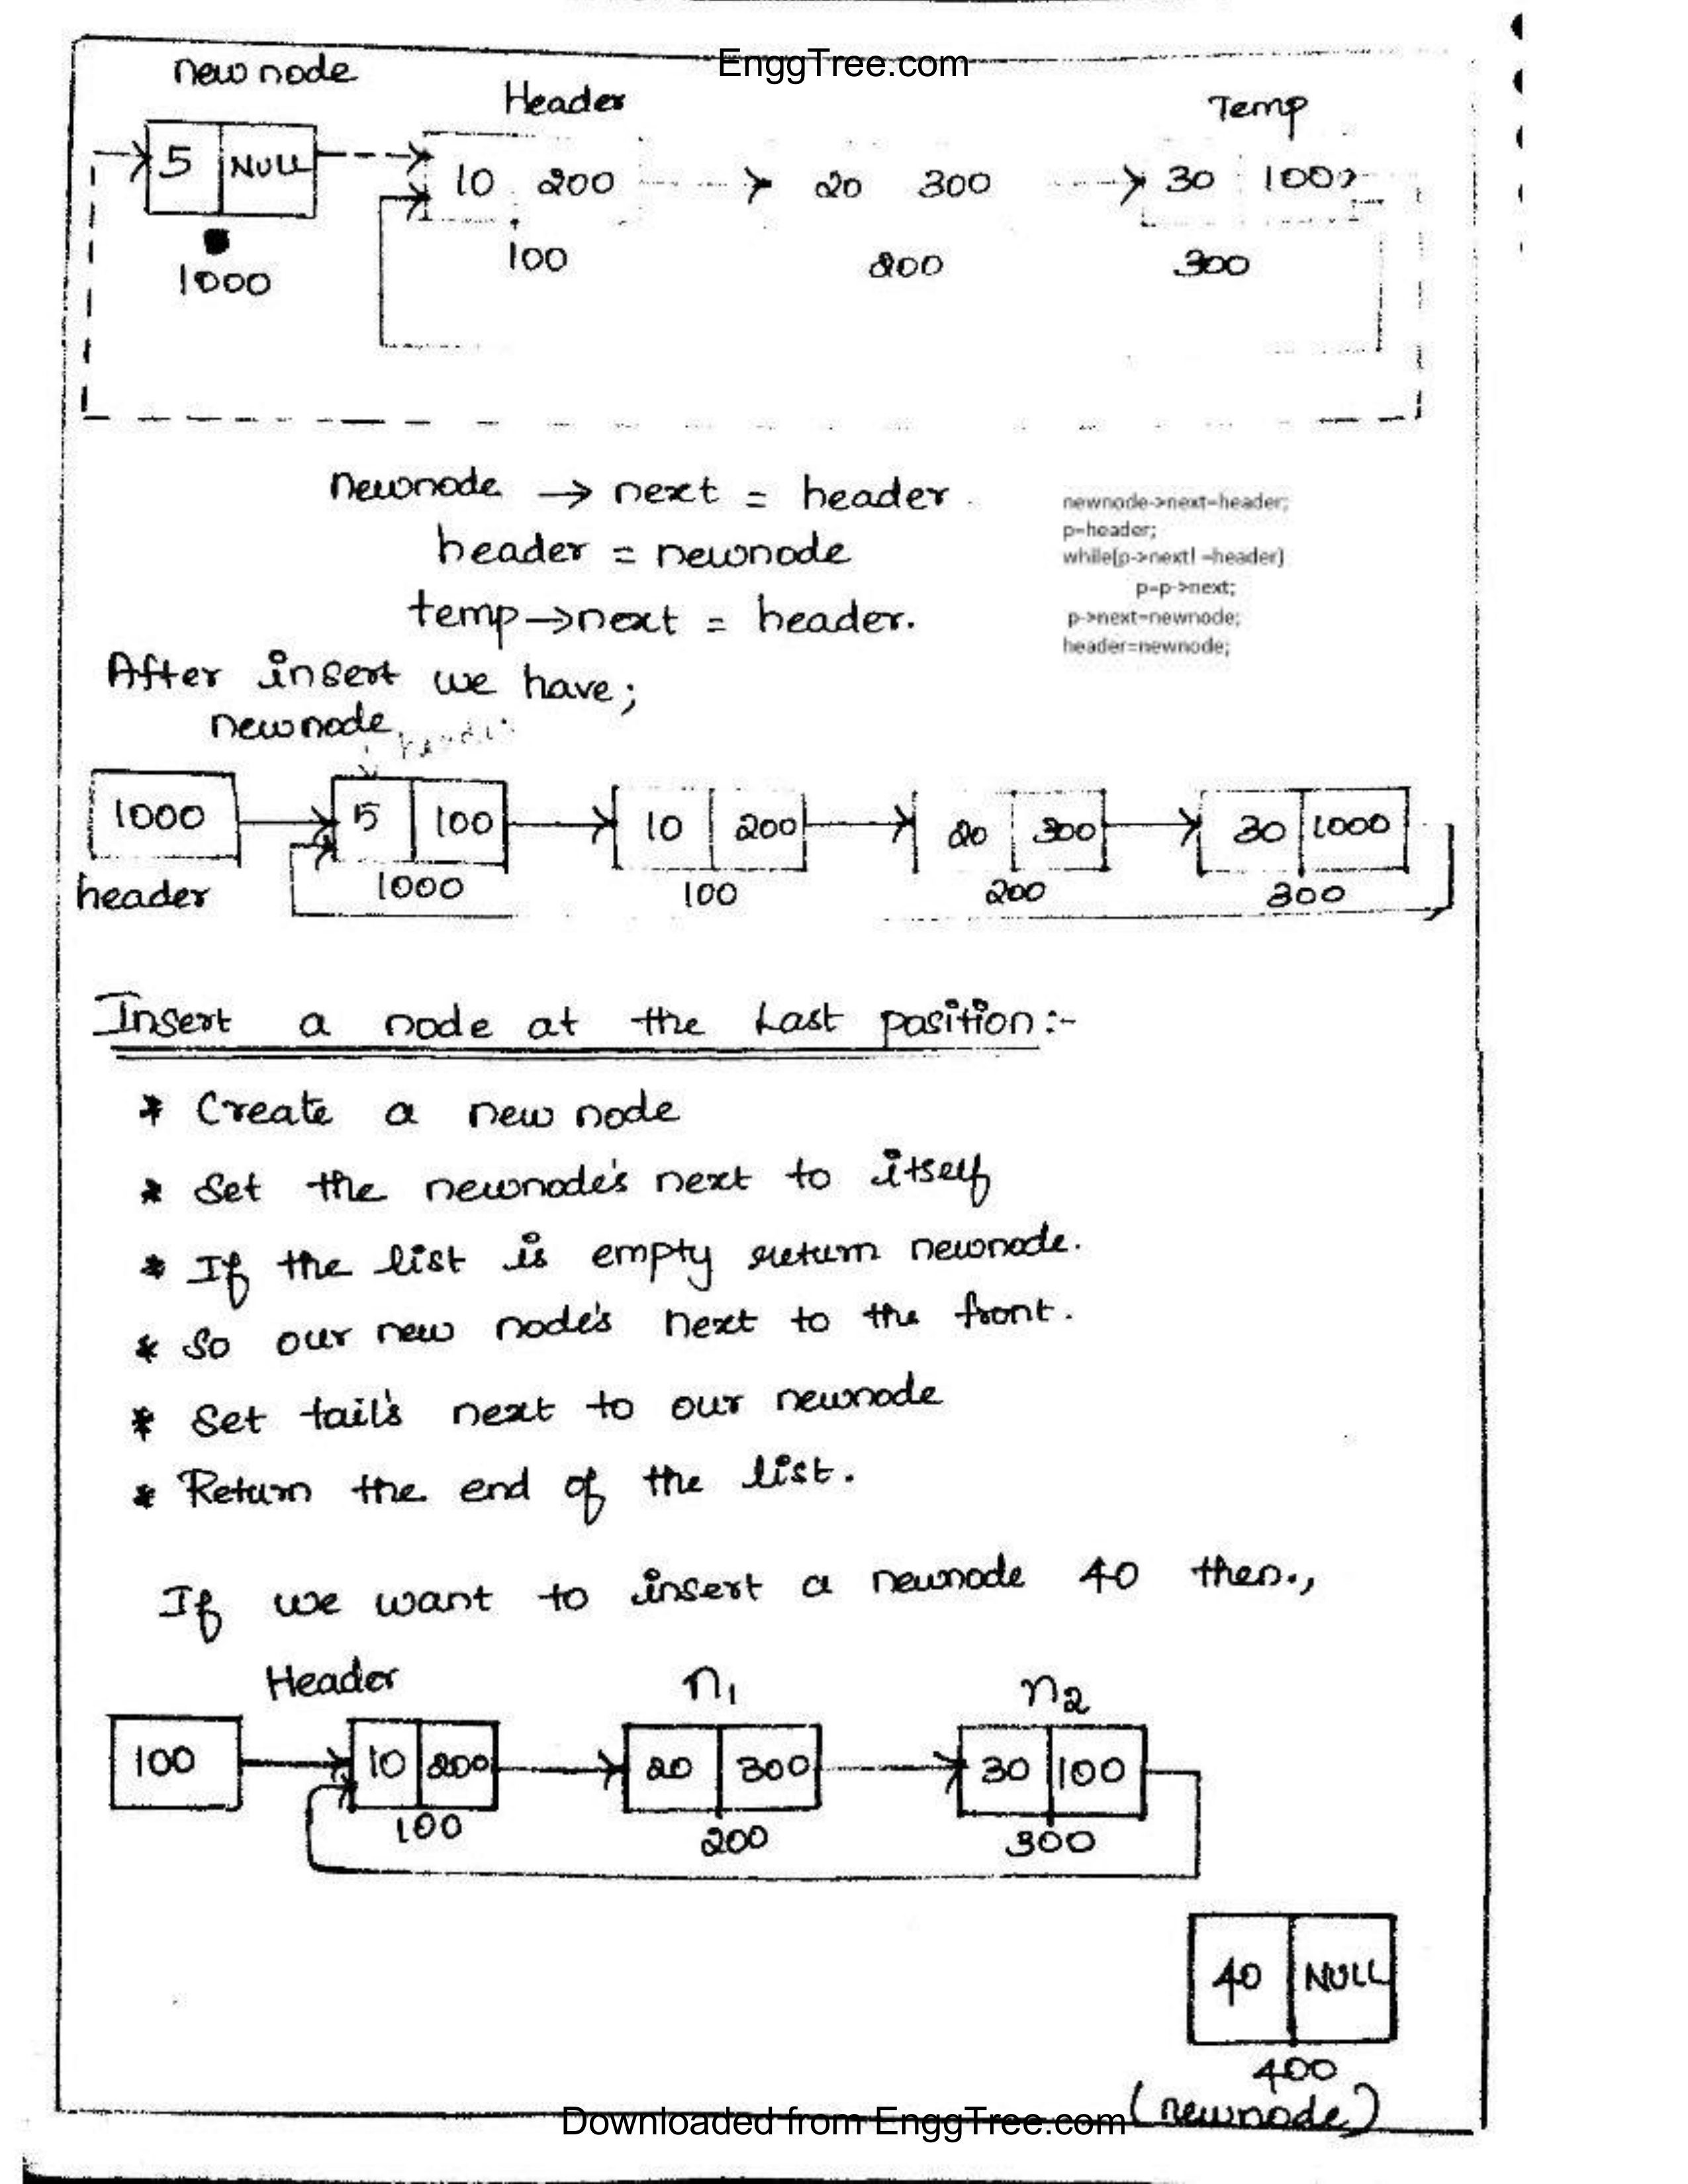 EnggTree.com
new node
Header
Temp
5 NULL
10 200
20 300
30
1000
100
200
300
newnode → next = header
header = newnode
temp → next = header.
newnode->next=header;
p=header;
while(p->next! =header)
p=p->next;
p->next=newnode;
header=newnode;
After insert we have;
newnode
1000 5 100 10 200 20 300 30 1000
header 1000 100 200 300
Insert a node at the Last position:-
* Create a new node
* Set the newnode's next to itself
* If the list is empty return newnode.
* So our new node's next to the front.
* Set tail's next to our newnode
* Return the end of the list.
If we want to insert a newnode 40 then.,
Header n1 n2
100 10 200 20 300 30 100
100 200 300
40 NULL
400
(newnode)
Downloaded from EnggTree.com